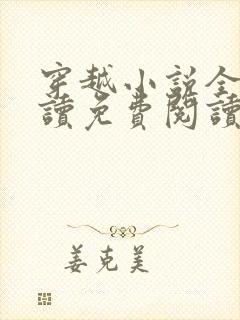 穿越小説全
讀免費閱讀
姜克美